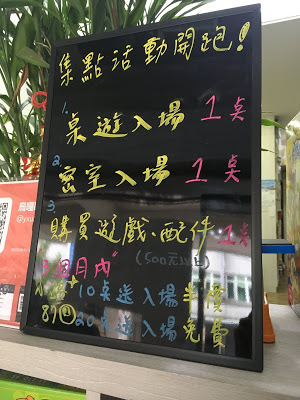 集點活動開跑!
1. 桌遊入場 1点
2. 密室入場 1点
3. 購買遊戲、配件 1点
(500元以上)
個月內"
10点送入場半價
20点送入場免費